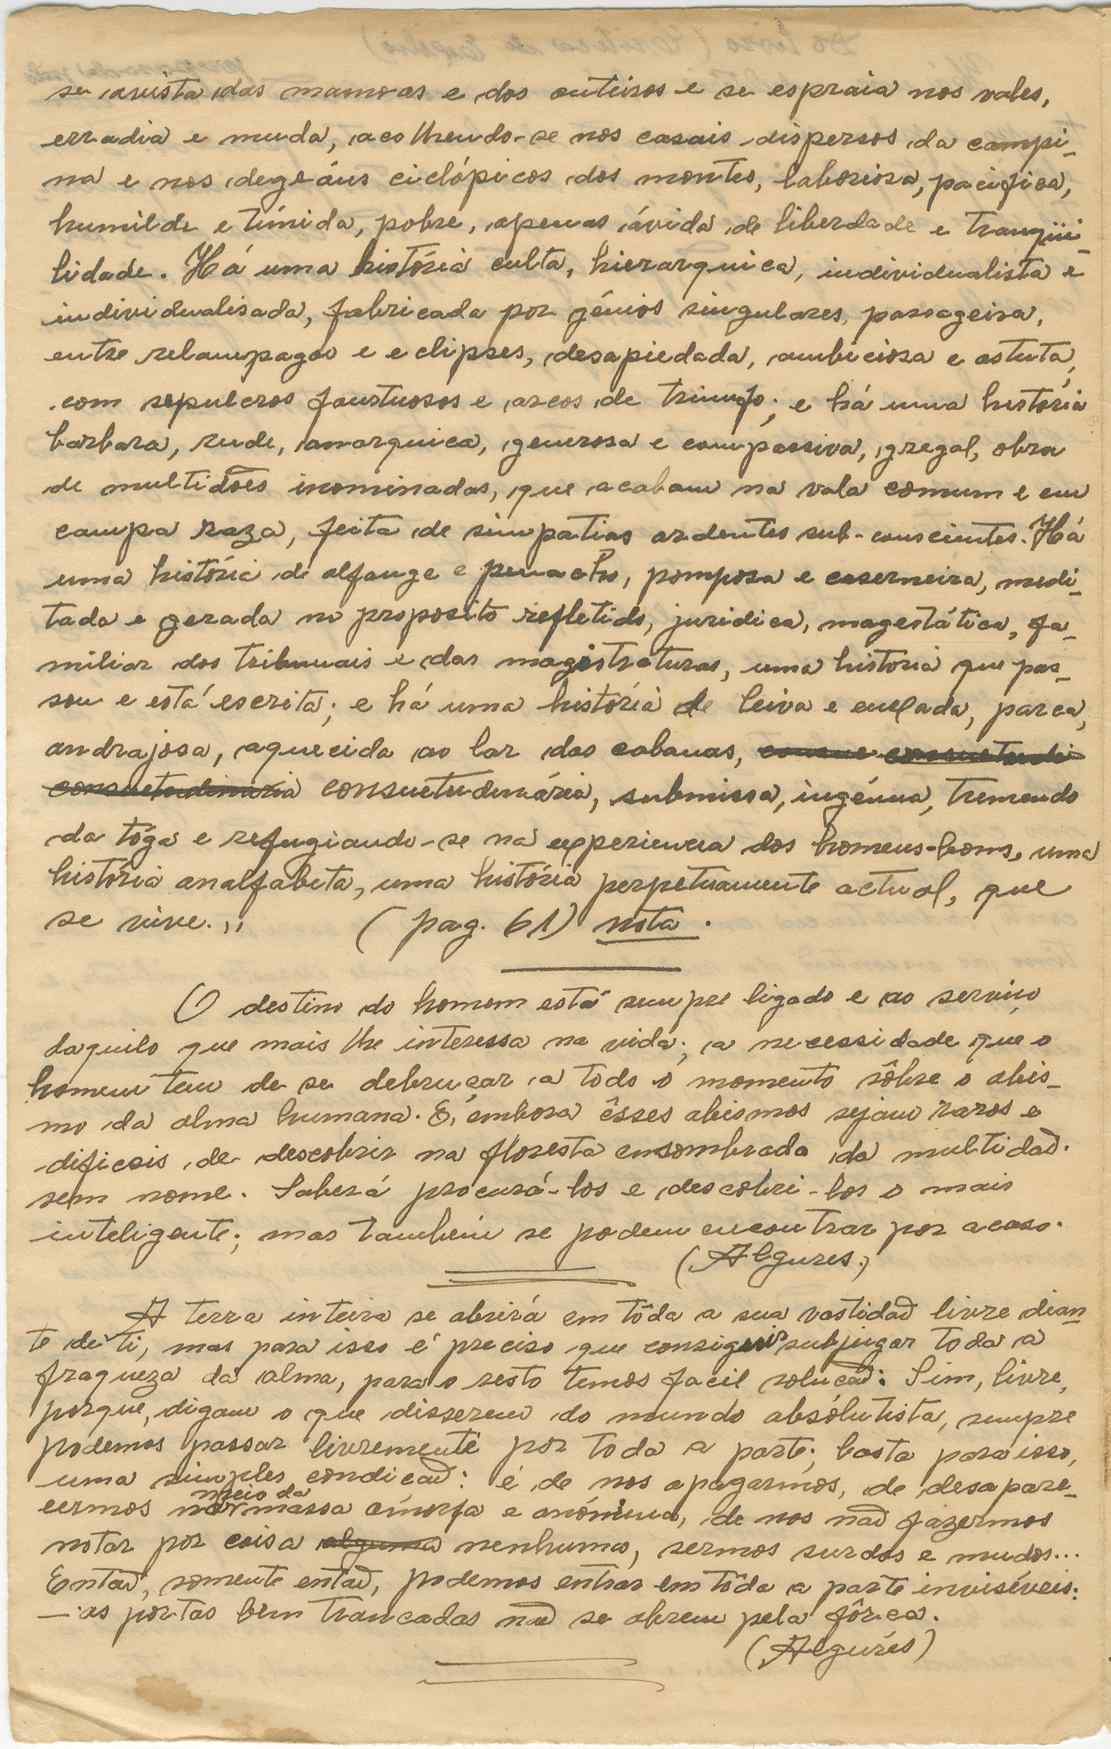 se avista das mamoas e dos outeiros e se espraia nos vales,
erradia e muda, acolhendo-se nos casais dispersos da campi-
na e nos degráus ciclópicos dos montes, laboriosa, pacifica,
humilde e tímida, pobre, apenas ávida de liberdade e tranqüi-
lidade. Há uma história culta, hierarquica, individualista e
individualisada, fabricada por génios singulares, passageira,
entre relampagos e eclipses, desapiedada, ambiciosa e astuta,
com sepulcros faustuosos e arcos de triunfo; e há uma história
barbara, rude, anarquica, generosa e compassiva, gregal, obra
de multidões inominadas, que acabam na vala comum e em
campa raza, feita de simpatias ardentes sub-conscientes. Há
uma historia de alfange e penacho, pomposa e caserneira, medi-
tada e gerada no proposito refletido, juridica, magestática, fa-
miliar dos tribunais e das magistraturas, uma historia que pas-
sou e está escrita; e há uma história de leiva e enxada, parca,
andrajosa, aquecida ao lar das cabanas, consue consuetudi
consuetudinária consuetudinária, submissa, ingénua, tremendo
da tóga e refugiando-se na experiencia dos homens-bons, uma
história analfabeta, uma história perpetuamente actual, que
se vive.,, (pag. 61) nota.
O destino do homem está sempre ligado e ao serviço
daquilo que mais lhe interessa na vida; a necessidade que o
homem tem de se debruçar a todo o momento sôbre o abis-
mo da alma humana. E, embora êsses abismos sejam raros e
dificeis de descobrir na floresta ensombrada da multidaõ
sem nome. Saberá procurá-los e descobri-los o mais
inteligente; mas tambem se podem encontrar por acaso.
(Algures.)
A terra inteira se abrirá em tôda a sua vastidaõ livre dian-
te de ti, mas para isso é preciso que consigas subjugar toda a
fraqueza da alma, para o resto temos facil soluçaõ: Sim, livre,
porque, digam o que disserem do mundo absólutista, sempre
podemos passar livremente por toda a parte; basta para isso,
uma simples condiçaõ: é de nos apagarmos, de desapare-
cermos no meio da massa amorfa e anónima, de nos naõ fazermos
notar por coisa alguma nenhuma, sermos surdos e mudos...
Entaõ, somente entaõ, podemos entrar em tôda a parte invisíveis:
— as portas bem trancadas naõ se abrem pela fôrça.
(Algures)